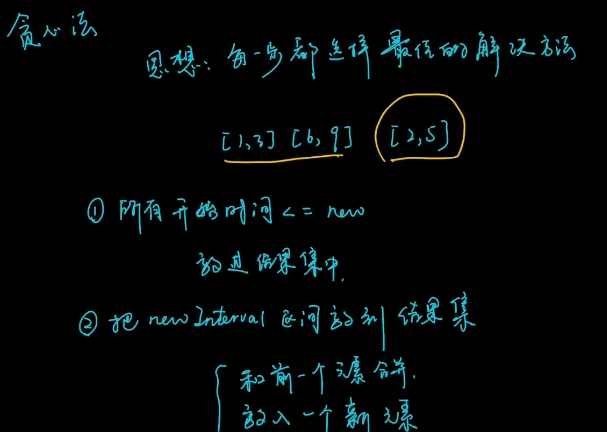 贪心法
思想：每一步都选择最佳的解决方法
[1,3] [6,9] [2,5]
① 所有开始时间 <= new
放进结果集中.
② 把 newInterval 区间放到结果集
和前一个元素合并.
放入一个新元素